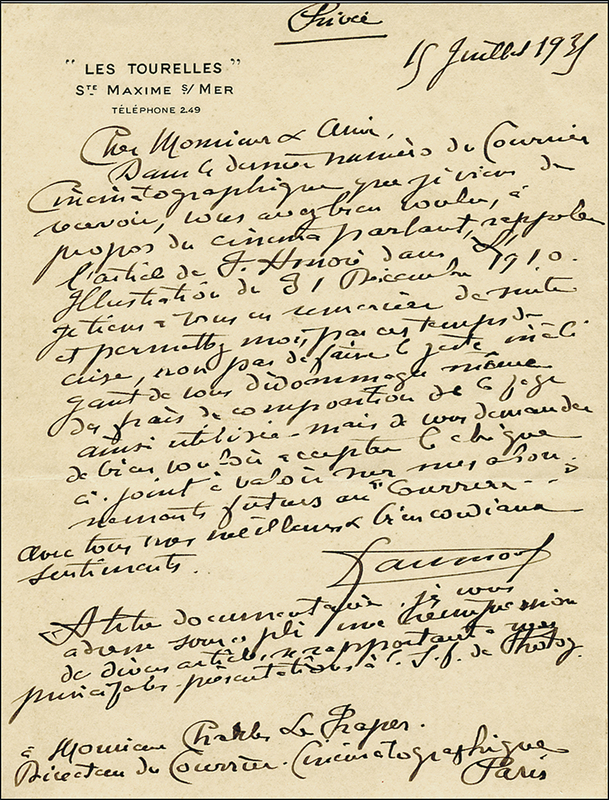 Privée
15 Juillet 1935
" LES TOURELLES "
STE MAXIME S/ MER
TÉLÉPHONE 2.49
Cher Monsieur & Ami,
Dans le dernier numéro du Courrier
Cinématographique que je viens de
recevoir, vous avez bien voulu, à
propos du cinéma parlant, rappeler
l'article de J. Honoré dans L'
Illustration du 31 Décembre 1910.
Je tiens à vous en remercier de suite
et permettez moi, par ces temps de
crise, non pas de faire le geste inélé
gant de vous dédommager même
des frais de composition de la page
ainsi utilisée - mais de vous demander
de bien vouloir accepter le chèque
ci-joint à valoir sur mes abon-
nements futurs au "Courrier"
avec tous mes meilleurs & bien cordiaux
sentiments.
Gaumont
A titre documentaire, je vous
adresse sous ce pli une réimpression
de divers articles se rapportant à mes
principales présentations à la S. f. de Photog.
à Monsieur Charles Le Fraper.
Directeur du Courrier Cinématographique
Paris